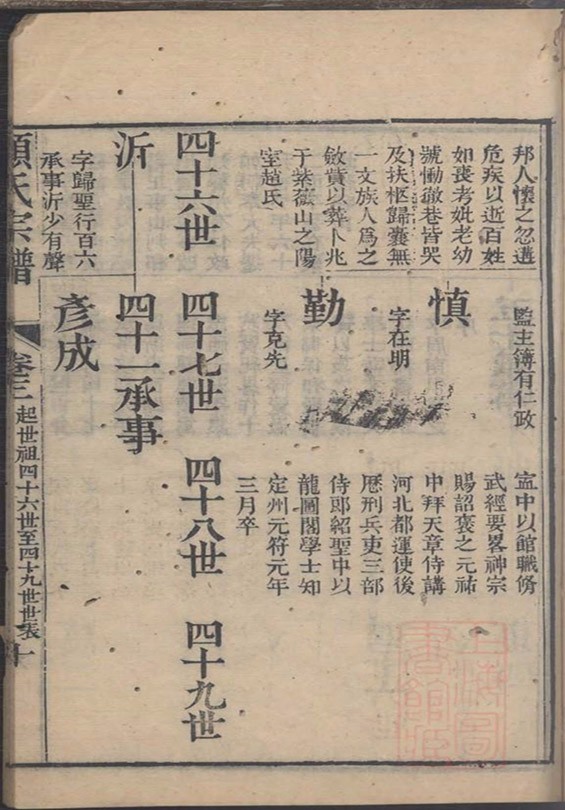 邦人懷之忽遘
危疾以逝百姓
如喪考妣老幼
號慟徹巷皆哭
及扶柩歸囊無
一文族人爲之
斂貲以葬卜兆
于紫薇山之陽
室趙氏
監主簿有仁政
慎
字在明
勤
字克先
寍中以館職脩
武經要畧神宗
賜詔褒之元祐
中拜天章侍講
河北都運使後
歷刑兵吏三部
侍郎紹聖中以
龍圖閣學士知
定州元符元年
三月卒
四十六世
四十七世
四十八世
四十九世
沂
字歸聖行百六
承事沂少有聲
四十一承事
彥成
氏宗譜
卷三
起世祖四十六世至四十九世世表
十
上海圖書館藏